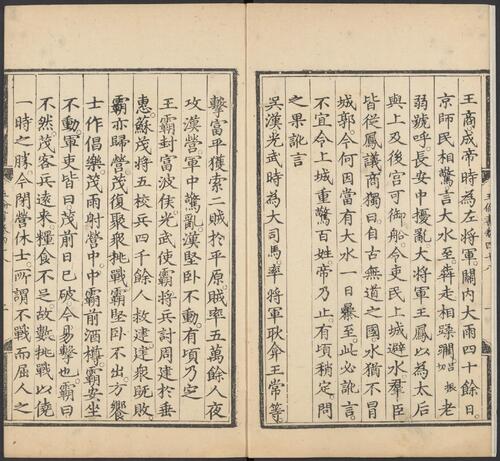 王商成帝時為左將軍關内大雨四十餘日。
京師民相驚言大水至犇走相蹂躪呂振切老
弱號呼。長安中擾亂大將軍王鳳以為太后
與上及後宮可御船。令吏民上城避水羣臣
皆從鳳議商獨曰。自古無道之國水猶不冒
城郭。今何因當有大水一日暴至。此必訛言。
不宜令上城重驚百姓帝乃止有頃稍定問
之果訛言
吳漢光武時為大司馬。率將軍耿弇王常等。
擊富平獲索二賊於平原。賊率五萬餘人夜
攻漢營軍中驚亂。漢堅卧不動有頃乃定
王霸封富波侯光武使霸將兵討周建於垂
惠。蘇茂將五校兵四千餘人救建建衆既敗。
霸亦歸營茂復聚衆挑戰霸堅卧不出。方饗
士作倡樂。茂雨射營中中霸前酒樽。霸安坐
不動。軍吏皆曰茂前日已破今易擊也霸曰
不然茂客兵遠來糧食不足。故數挑戰以僥
一時之勝。今閉營休士。所謂不戰而屈人之